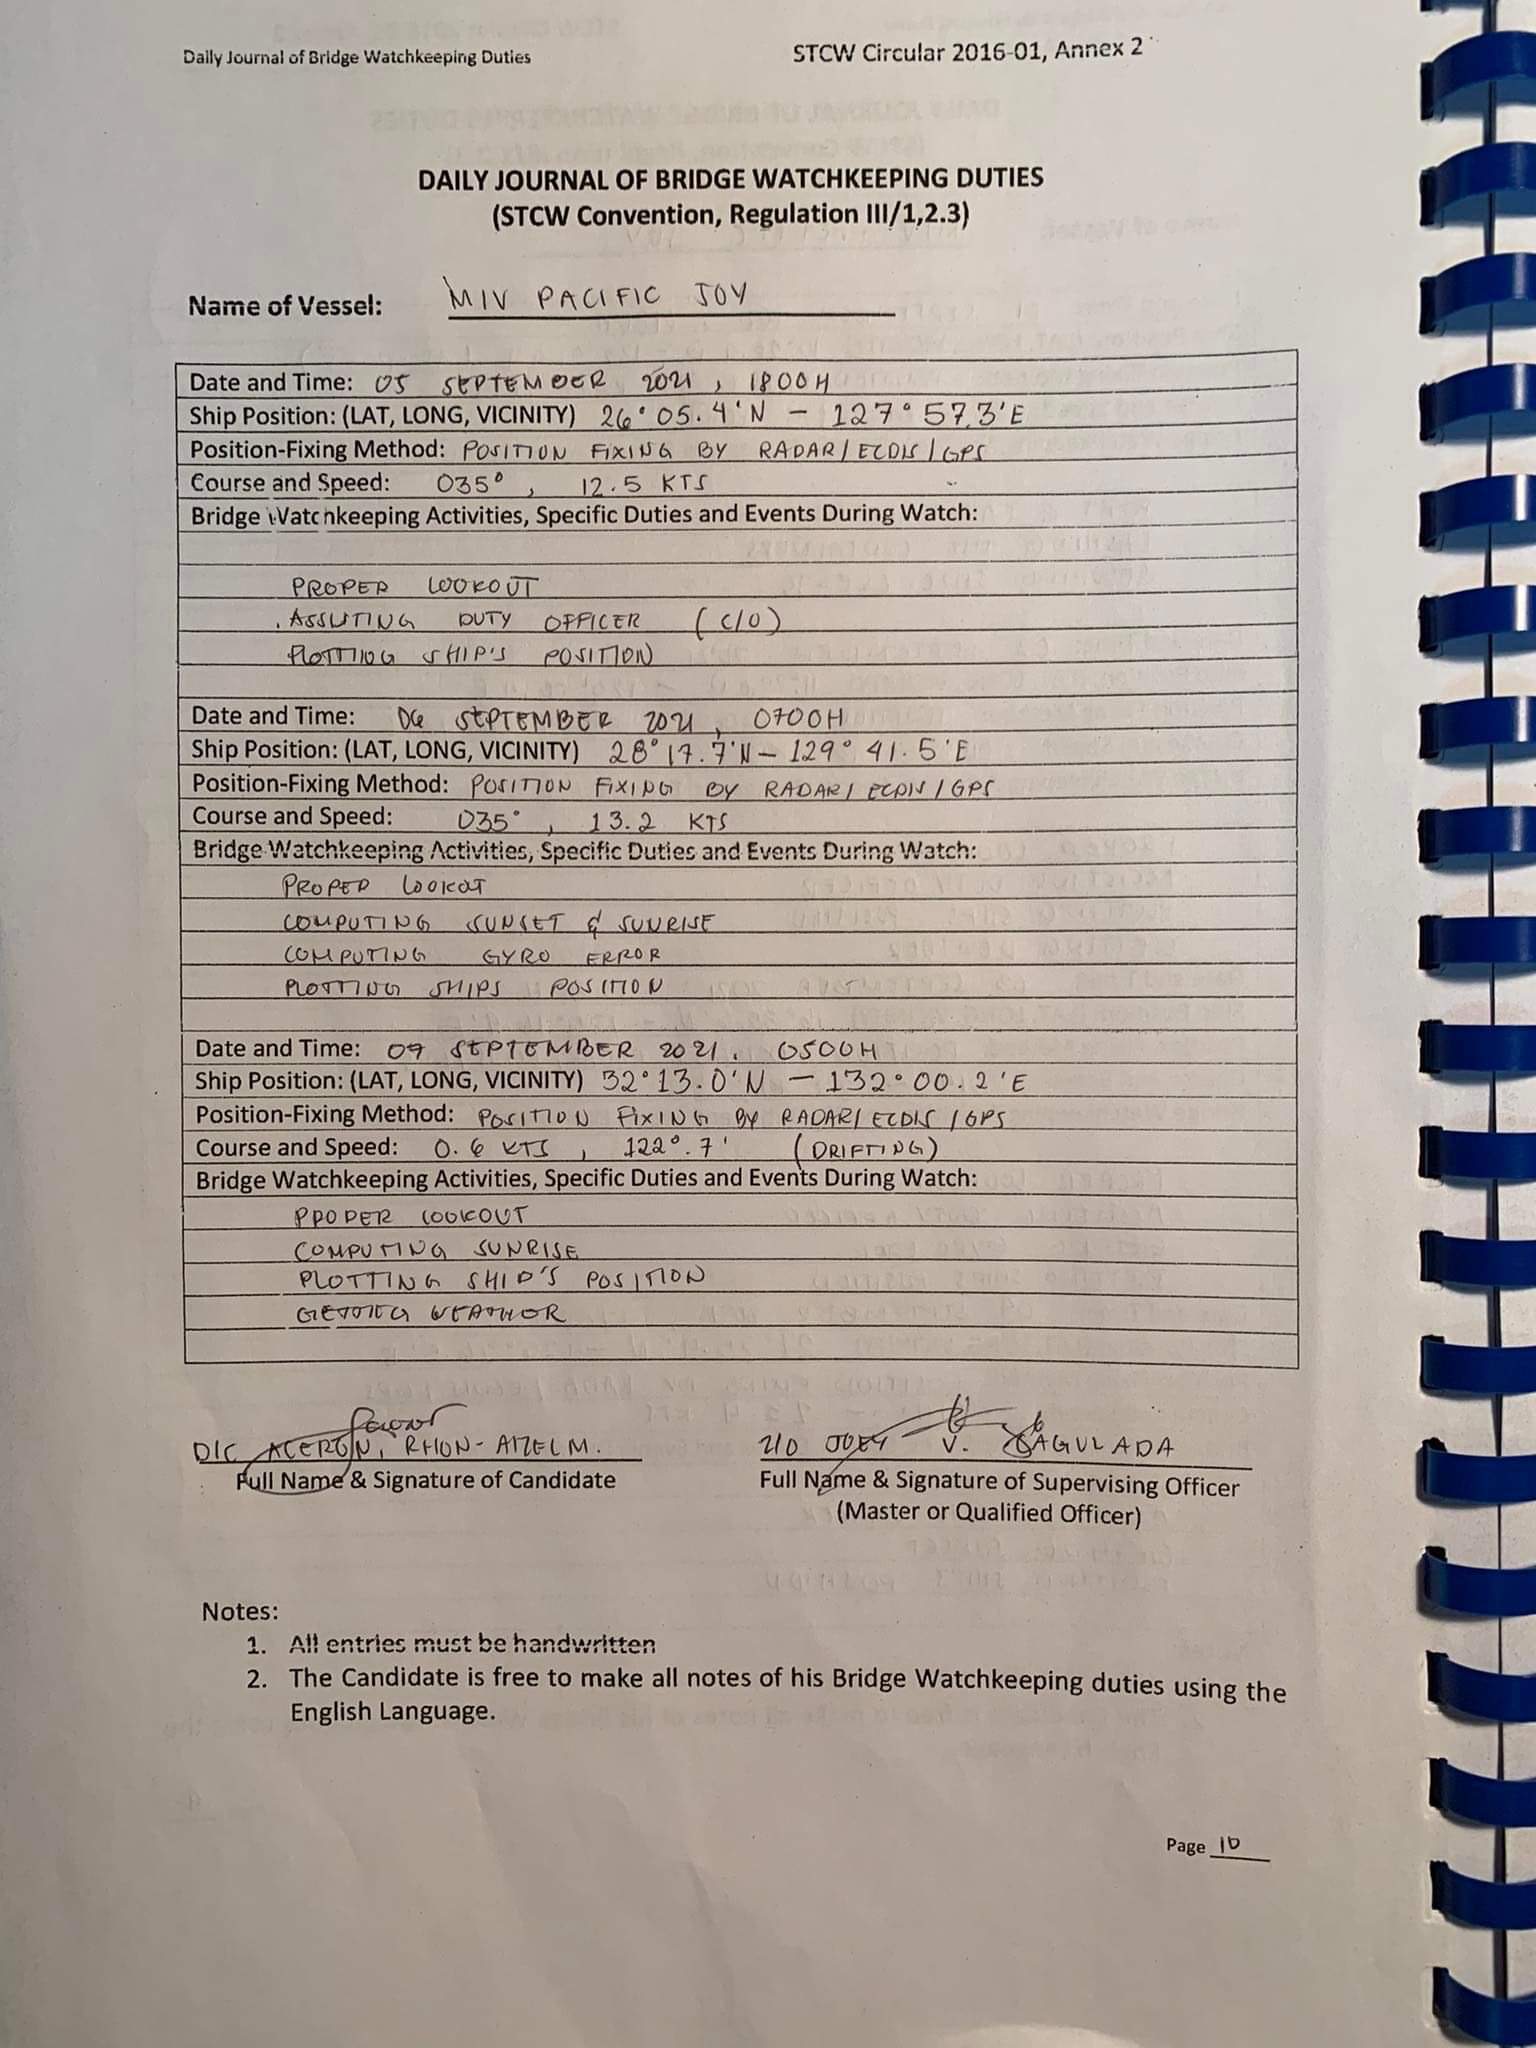 Daily Journal of Bridge Watchkeeping Duties
STCW Circular 2016-01, Annex 2
DAILY JOURNAL OF BRIDGE WATCHKEEPING DUTIES
(STCW Convention, Regulation III/1,2.3)
Name of Vessel: M/V PACIFIC JOY
Date and Time: 05 SEPTEMBER 2021, 1800H
Ship Position: (LAT, LONG, VICINITY) 26° 05.4'N - 127° 57.3'E
Position-Fixing Method: POSITION FIXING BY RADAR/ECDIS/GPS
Course and Speed: 035°, 12.5 KTS
Bridge Watchkeeping Activities, Specific Duties and Events During Watch:
PROPER LOOKOUT
ASSISTING DUTY OFFICER (C/O)
PLOTTING SHIP'S POSITION
Date and Time: 06 SEPTEMBER 2021, 0700H
Ship Position: (LAT, LONG, VICINITY) 28° 17.7'N - 129° 41.5'E
Position-Fixing Method: POSITION FIXING BY RADAR/ECDIS/GPS
Course and Speed: 035°, 13.2 KTS
Bridge Watchkeeping Activities, Specific Duties and Events During Watch:
PROPER LOOKOT
COMPUTING SUNSET & SUNRISE
COMPUTING GYRO ERROR
PLOTTING SHIPS POSITION
Date and Time: SEPTEMBER 2021, 0500H
Ship Position: (LAT, LONG, VICINITY) 32° 13.0'N - 132° 00.2'E
Position-Fixing Method: POSITION FIXING BY RADAR/ECDIS/GPS
Course and Speed: 0.6 KTS, 122°.7' (DRIFTING)
Bridge Watchkeeping Activities, Specific Duties and Events During Watch:
PROPER LOOKOUT
COMPUTING SUNRISE
PLOTTING SHIP'S POSITION
GETTING WEATHER
D/C ACERON, RHON- M.
2/O JOEY V. AGULADA
Full Name & Signature of Candidate
Full Name & Signature of Supervising Officer
(Master or Qualified Officer)
Notes:
1. All entries must be handwritten
2. The Candidate is free to make all notes of his Bridge Watchkeeping duties using the
English Language.
Page 10